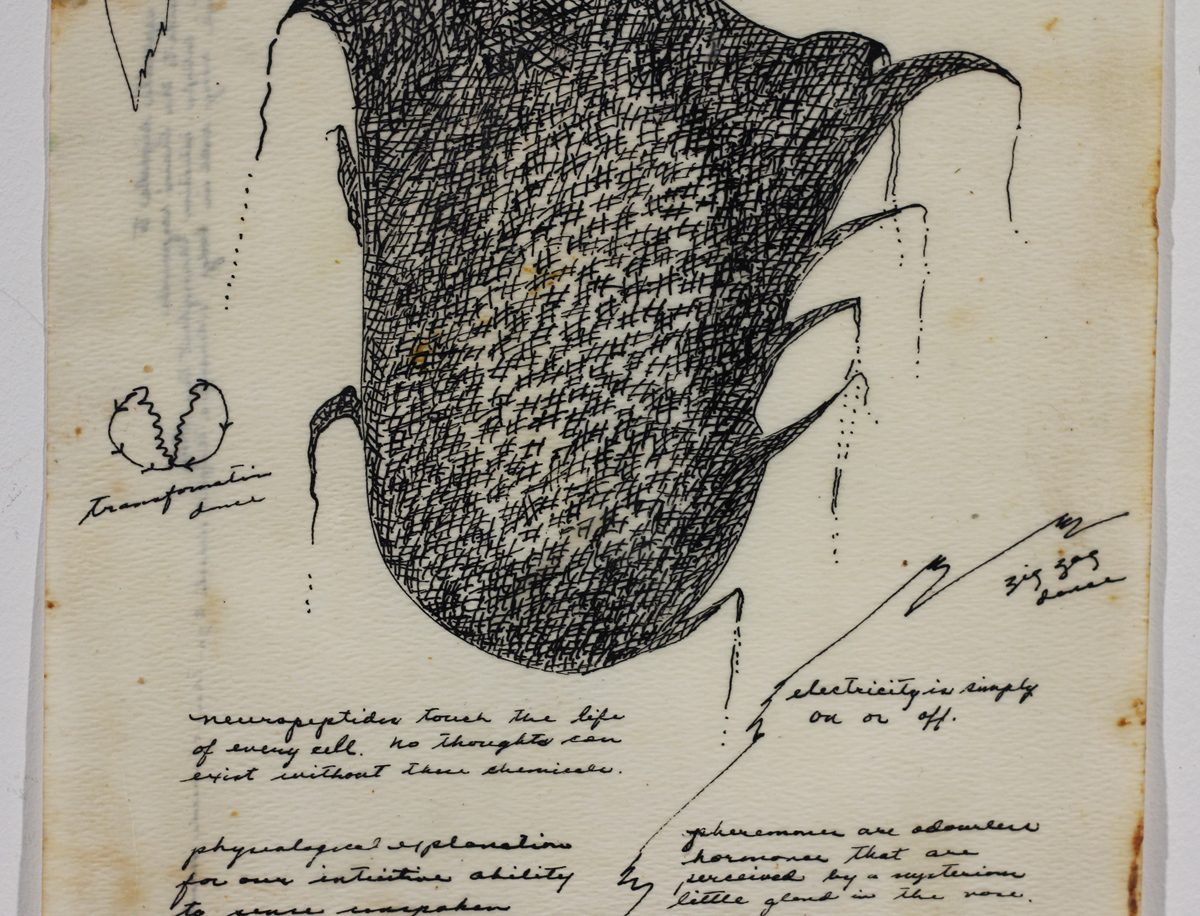 transformation
dance
zig zag
dance
electricity is simply
on or off.
neuropeptides touch the life
of every cell. No thoughts can
exist without these chemicals.
physiological explanation
for our intuitive ability
to sense unspoken
pheremones are odourless
hormones that are
perceived by a mysterious
little gland in the nose.